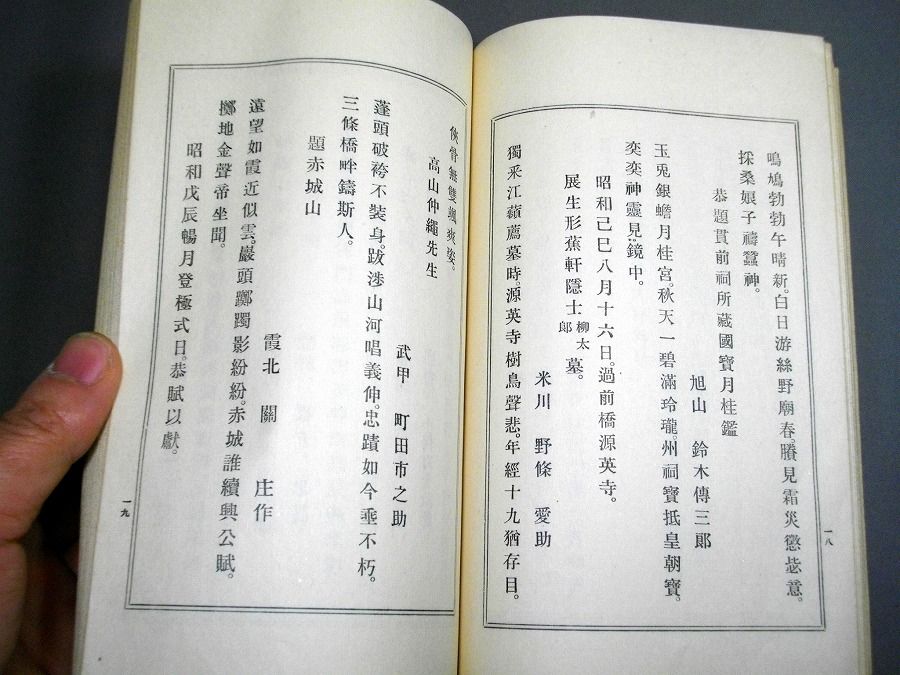 鳴鳩勃勃午晴新。白日游絲野廟春。賸見霜災懲毖意。
採桑娘子禱蠶神。
恭題貫前祠所藏國寶月桂鑑
旭山 鈴木傳三郞
玉兎銀蟾月桂宮。秋天一碧滿玲瓏。州祠寶抵皇朝寶。
奕奕神靈見鏡中。
昭和己巳八月十六日。過前橋源英寺。
展生形蕉軒隱士柳太郎墓。
米川 野條 愛助
獨釆江蘋薦墓時。源英寺樹鳥聲悲。年經十九猶存目。
一八
俠骨無雙颯爽姿。
高山仲繩先生
武甲 町田市之助
蓬頭破袴不裝身。跋渉山河唱義伸。忠蹟如今垂不朽。
三條橋畔鑄斯人。
題赤城山
霞北 關 庄作
遠望如霞近似雲。巖頭躑躅影紛紛。赤城誰續興公賦。
擲地金聲帝坐聞。
昭和戊辰暢月登極式日。恭賦以獻。
一九